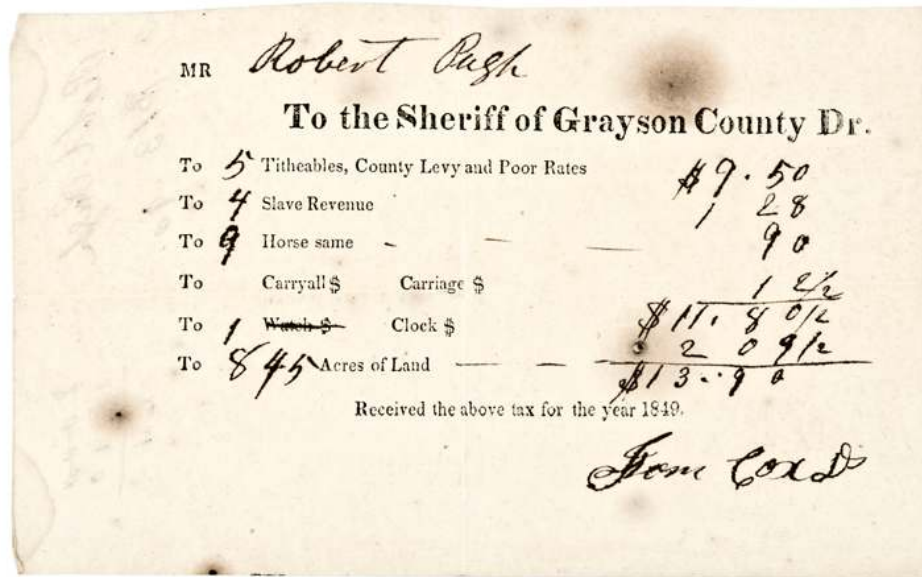 MR Robert Pugh
To the Sheriff of Grayson County Dr.
To 5 Titheables, County Levy and Poor Rates $9.50
To 4 Slave Revenue 1 28
To 9 Horse same - — — 90
To Carryall $ Carriage $ 12½
To 1 Watch $ Clock $ $11.80½
To 845 Acres of Land — — 2 09½
$13..90
Received the above tax for the year 1849.
Cox DS